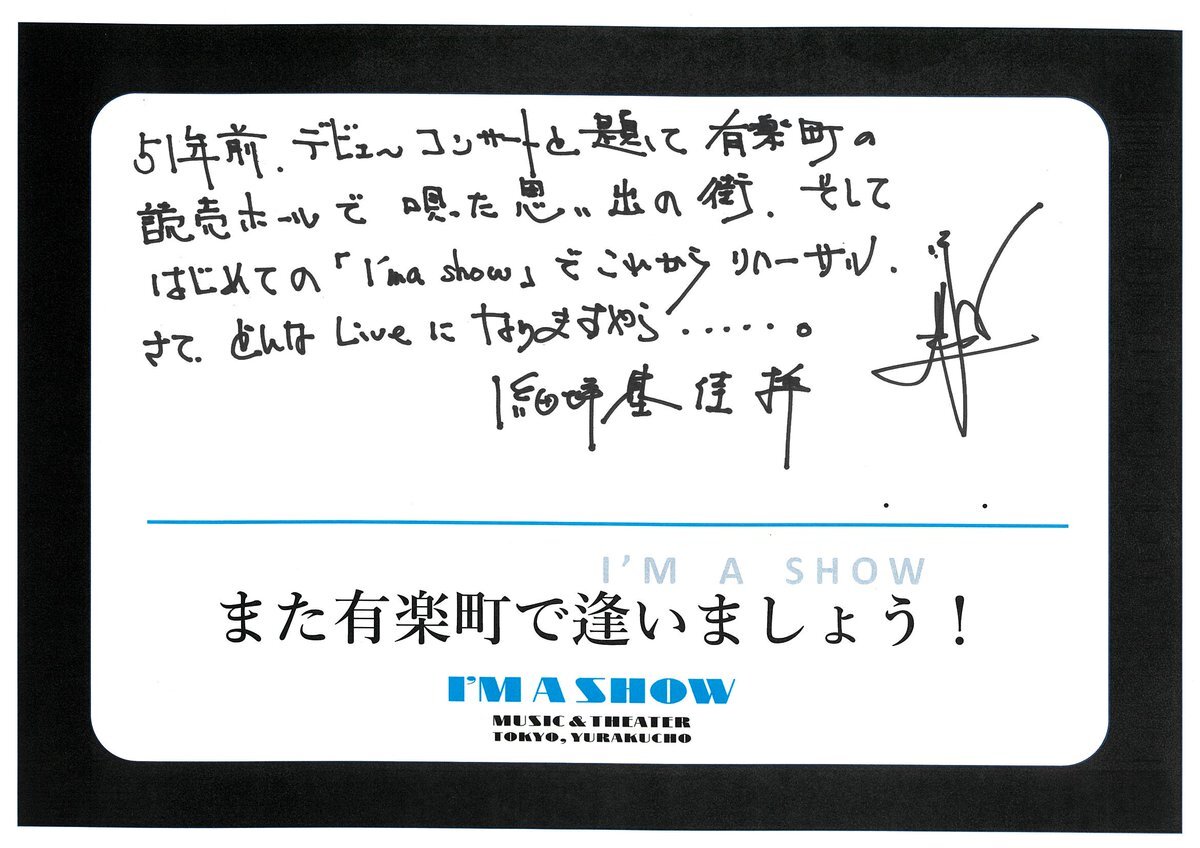 51年前.デビューコンサートと題して有楽町の
読売ホールで唄った思い出の街.そして
はじめての「I'm a show」でこれからリハーサル.
さて.どんなLiveになりますやら・・・・・。
因幡晃拝
I'M A SHOW
また有楽町で逢いましょう！
I'M A SHOW
MUSIC & THEATER
TOKYO, YURAKUCHO